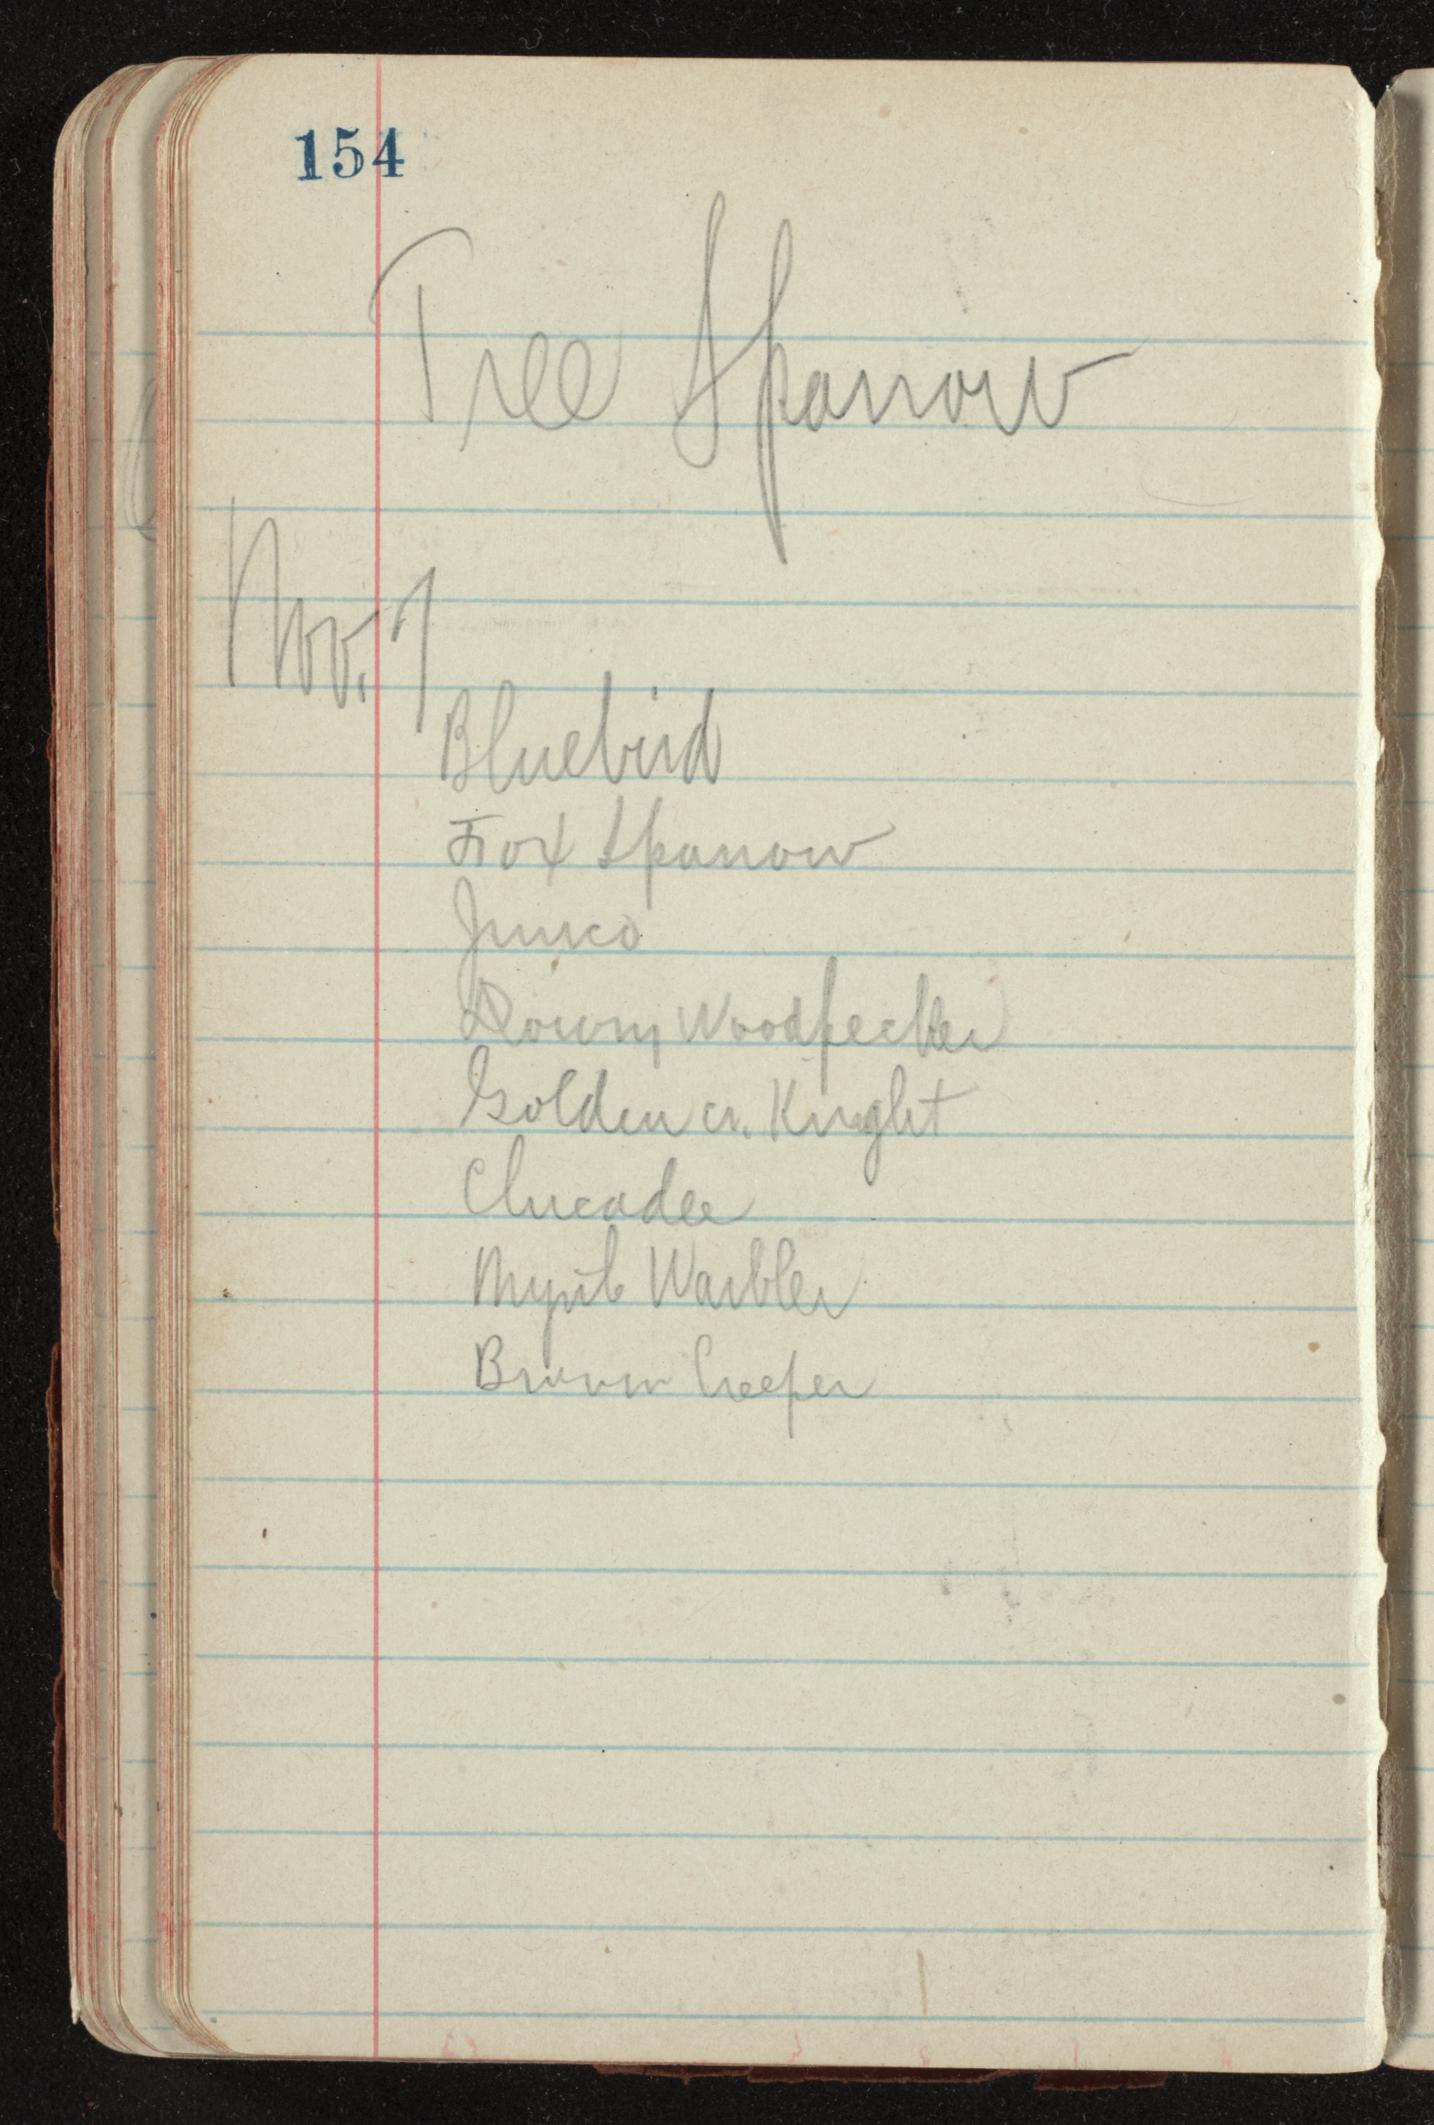 154
Tree Sparrow
Nov. 7
Bluebird
Fox Sparrow
Junco
Downy Woodpecker
Golden cr. Knight
Chicadee
Warbler
Brown Creeper